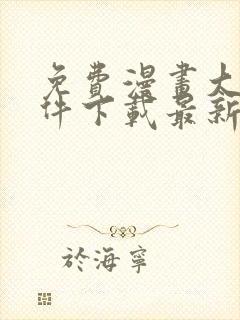 免費漫畫大
件下載最新
於海寧